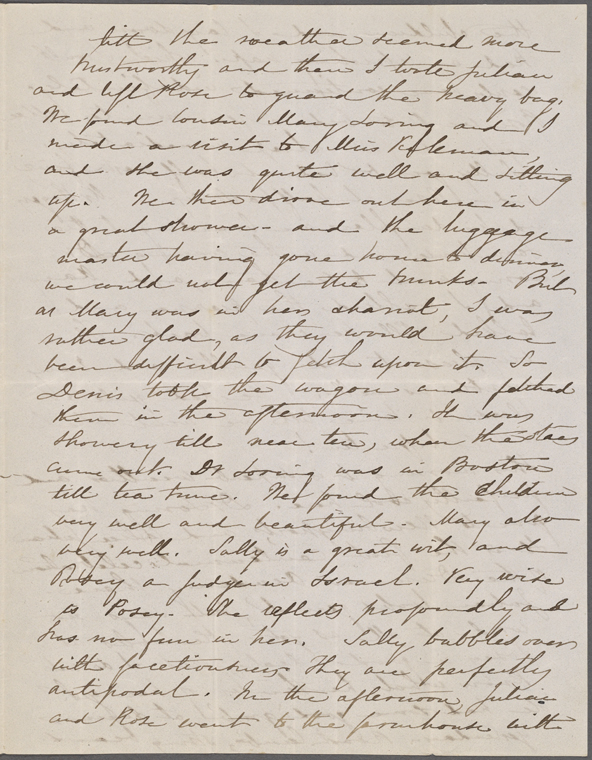 till the weather seemed more
trustworthy and then I took Julian
and left Rose to guard the heavy bag.
We found Cousin Mary Loring and I
made a visit to Miss
and she was quite well and sitting
up. We then drove out here in
a great shower - and the luggage
master having gone home to dinner,
we could not get the trunks - But
as Mary was in her chariot, I was
rather glad, as they would have
been difficult to fetch upon it. So
Denis took the wagon and fetched
them in the afternoon. It was
showery till near ten, when the stars
came out. Dr Loring was in Boston
till tea time. We found the children
very well and beautiful - Mary also
very well. Sally is a great wit, and
Posey a Judge in Israel. Very wise
is Posey - She reflects profoundly and
has no fun in her. Sally bubbles over
with facetiousness They are perfectly
antipodal. In the afternoon Julian
and Rose went to the farmhouse with